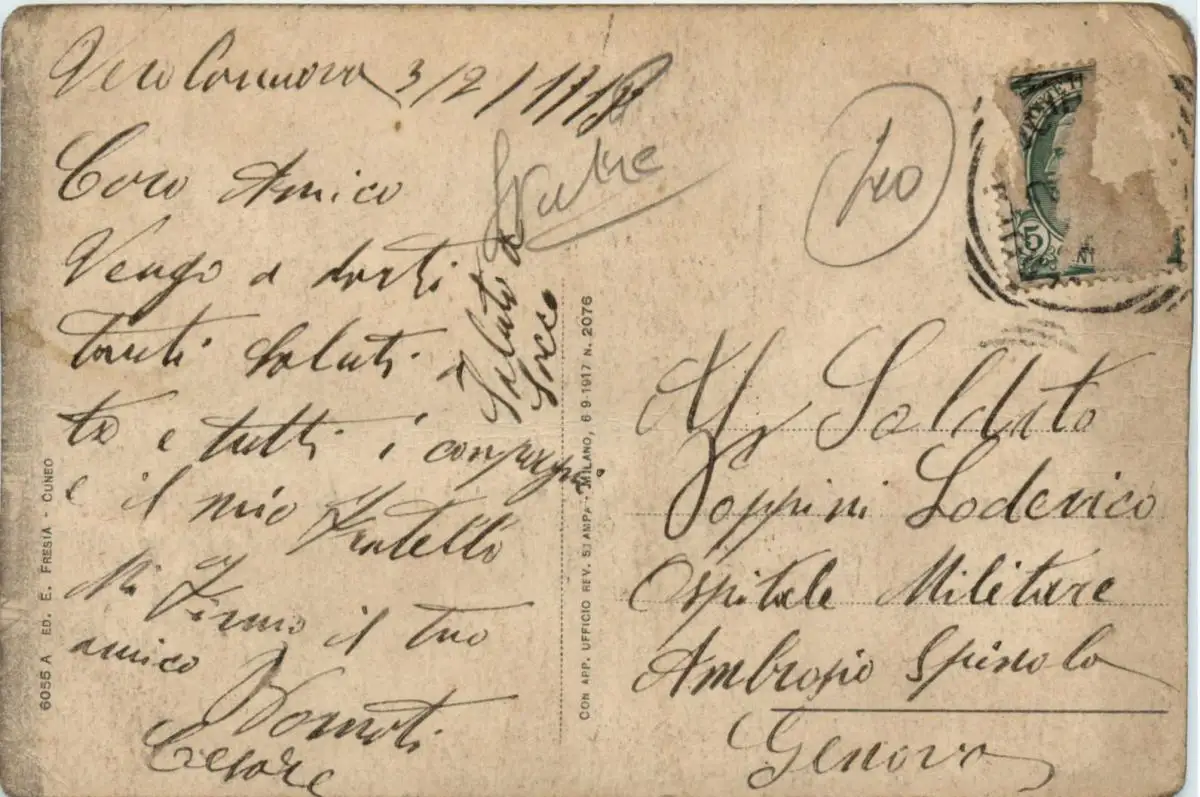 3/2/1918
Caro Amico
Vengo a darti
tanti Saluti a
te e tutti i compagni
e il mio Fratello
Mi Firmo il tuo
amico
Donati
Cesare
Saluto a
5
Al Soldato
Lodovico
Ospitale Militare
Ambrogio Spinola
Genova
6056 A ED. E. FRESIA - CUNEO
CON APP. UFFICIO REV. STAMPA - MILANO, 6 9-1917 N. 2076